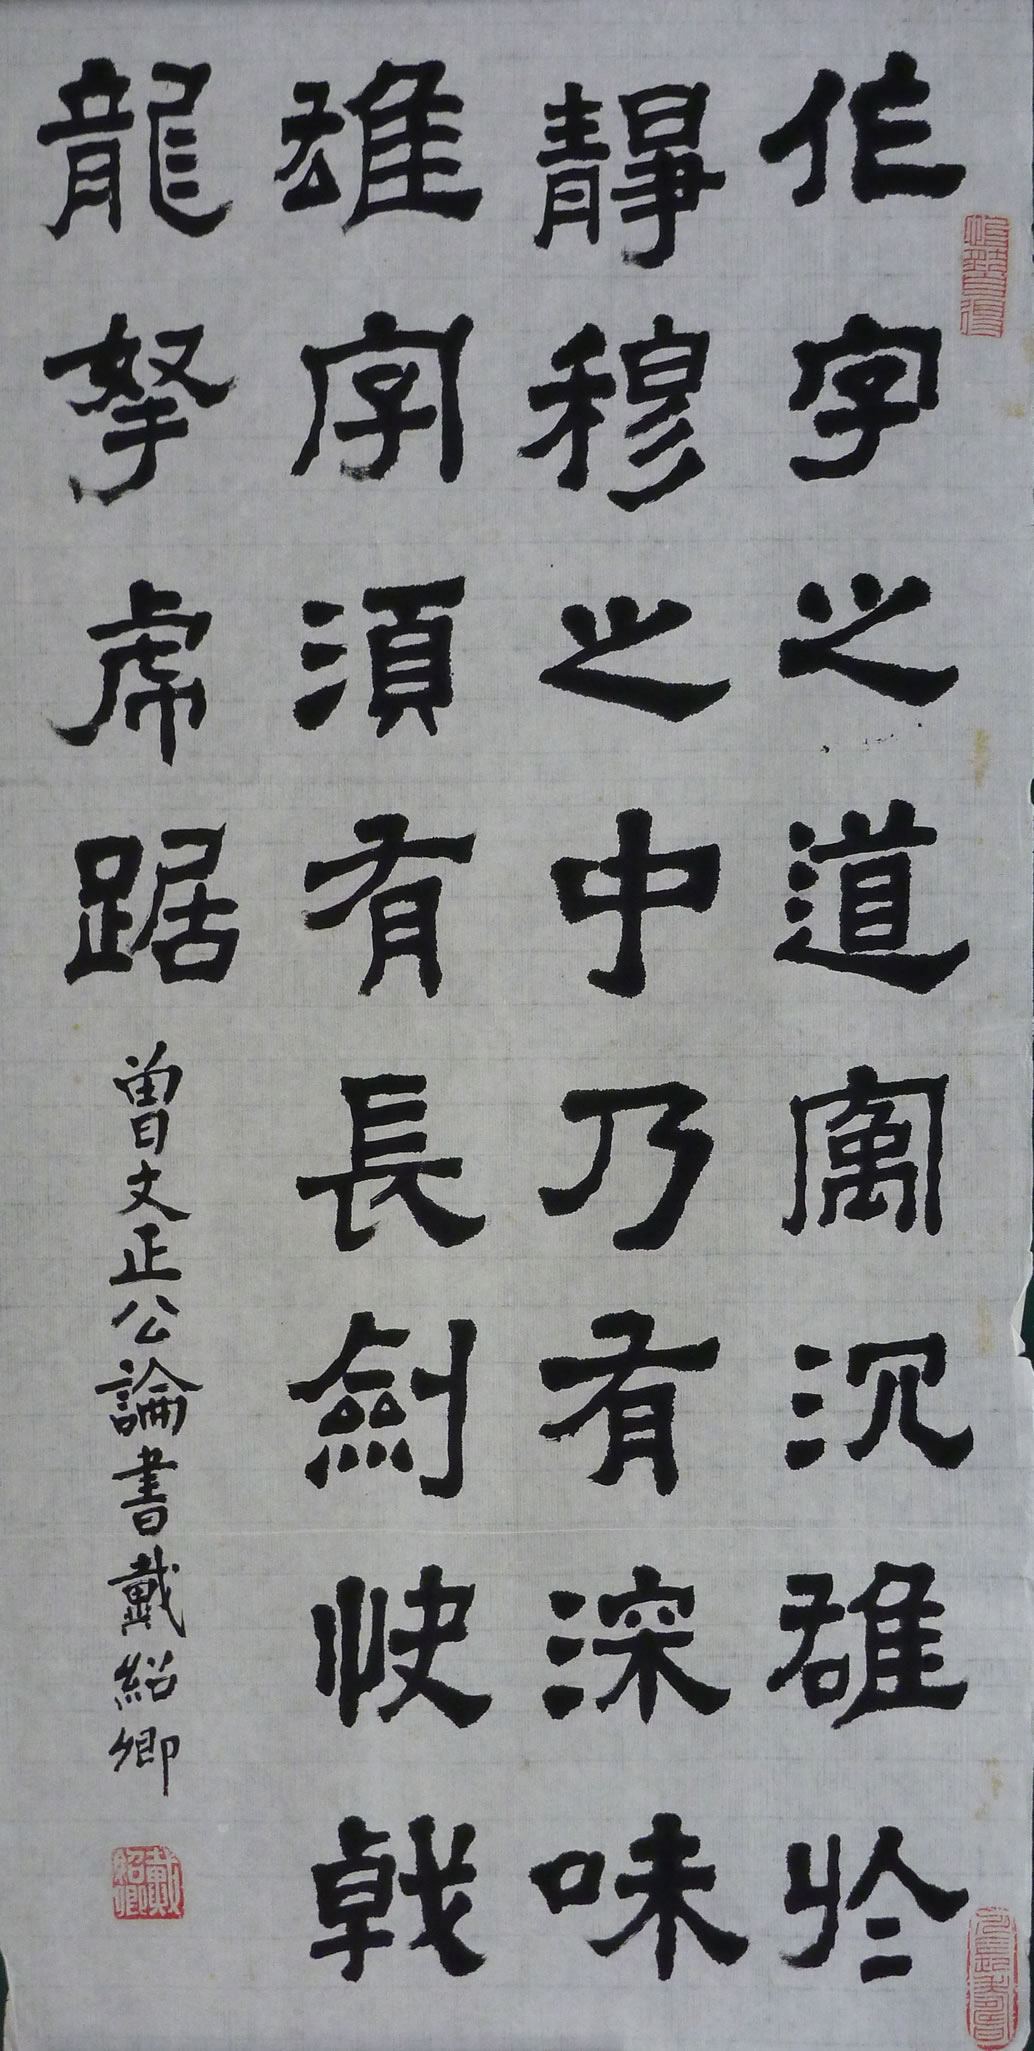 作字之道寓沉雄於
靜穆之中乃有深味
雄字須有長劍快戟
龍拏虎踞
曾文正公論書戴紹卿
戴紹卿